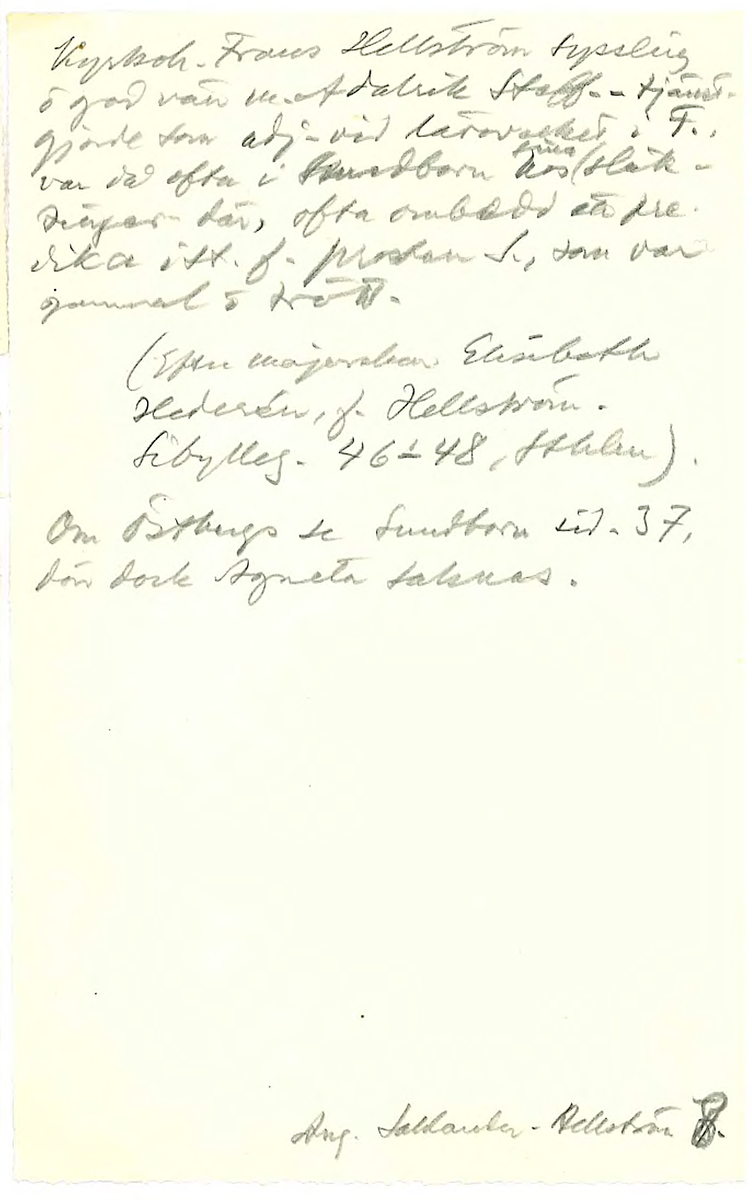 Kyrkoh. Frans Hellström syssling
o god vän m. Adalrik Staff. - tjänst-
gjorde som adj. vid läroverket i F.,
var då ofta i Sundborn hos sina släk-
tingar där, ofta ombedd att pre-
dika i st. f. prosten S., som var
gammal o trött.
(Efter majorskan Elisabeth
Hederén, f. Hellström.
Sibylleg. 46-48, Sthlm).
Om Östbergs se Sundborn sid. 37,
där dock Agneta saknas.
Ang. Sahlander-Hellström 8.